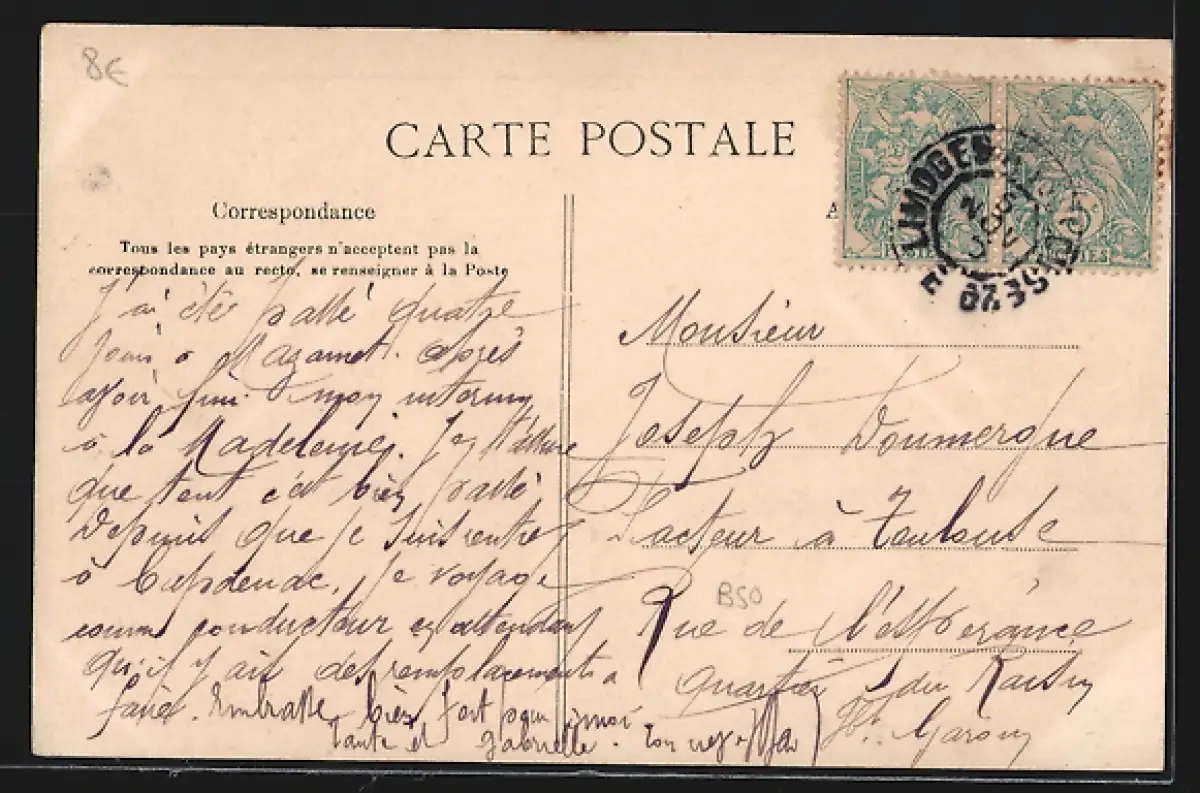 8€
CARTE POSTALE
Correspondance
Tous les pays étrangers n'acceptent pas la
correspondance au recto, se renseigner à la Poste
J'ai été passé quatre
jours à Mazamet. après
avoir fini mon
à la Madeleine. J'en
que tout c'est bien passé
Depuis que je suis rentré
à Capdenac, je voyage
comme conducteur en attendant
qu'il y ait des remplacements a
faire. Embrasse bien fort pour moi
tante et Gabrielle. Ton
LIMOGES
POSTES
Monsieur
Joseph Doumergue
Facteur à Toulouse
B50
Rue de l'espérance
quartier du Raisin
Hte Garonne